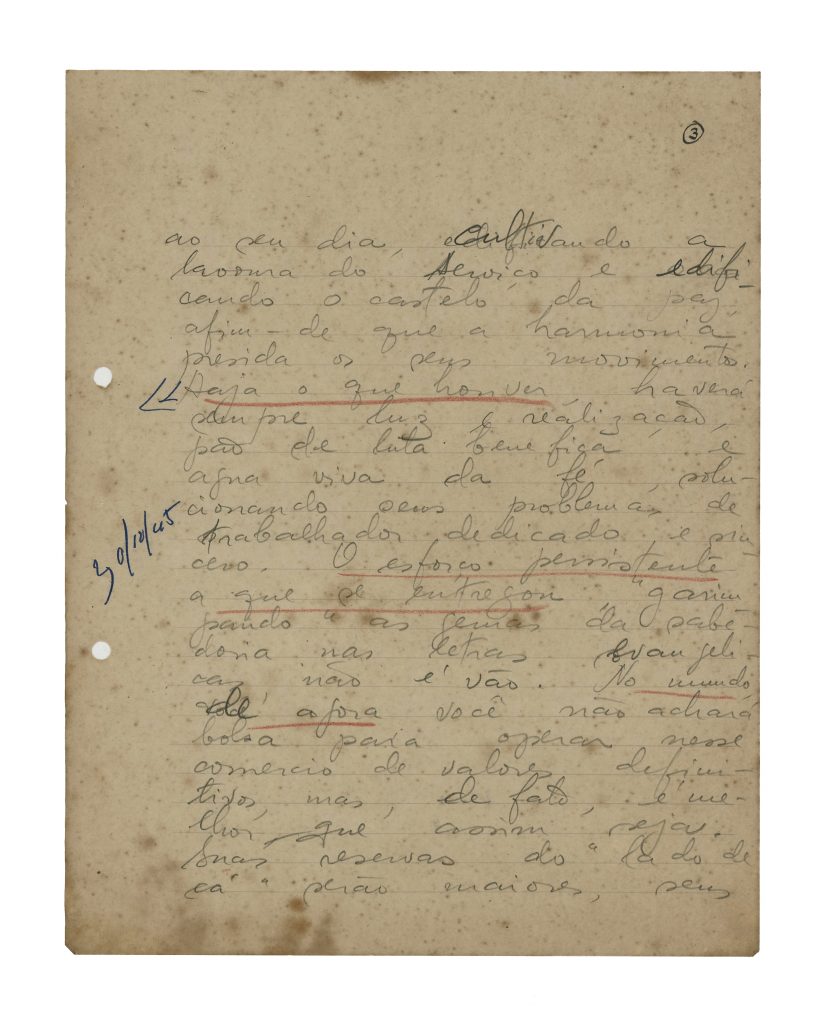 3
ao seu dia, cultivando a
lavoura do serviço e edifi-
cando o castelo da paz,
afim-de que a harmonia
presida os seus movimentos.
Haja o que houver, haverá
sempre luz e realização,
pão de luta benefica e
agua viva da fé, solu-
cionando seus problemas de
trabalhador dedicado e sin-
cero. O esforço persistente
a que se entregou, "garim
pando" as gemas da sabe-
doria nas letras evangeli-
cas não é vão. No mundo,
de agora você não achará
bolsa para operar nesse
comercio de valores defini-
tivos, mas, de fato, é me-
lhor que assim seja.
Suas reservas do "lado de
cá" serão maiores, seus
30/10/45